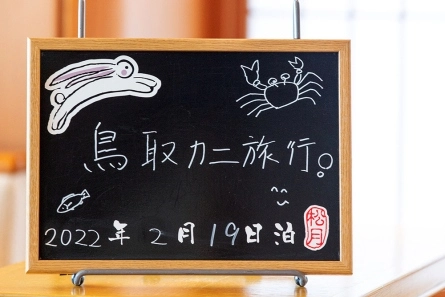 鳥取カニ旅行。
2022年2月19日泊
松月